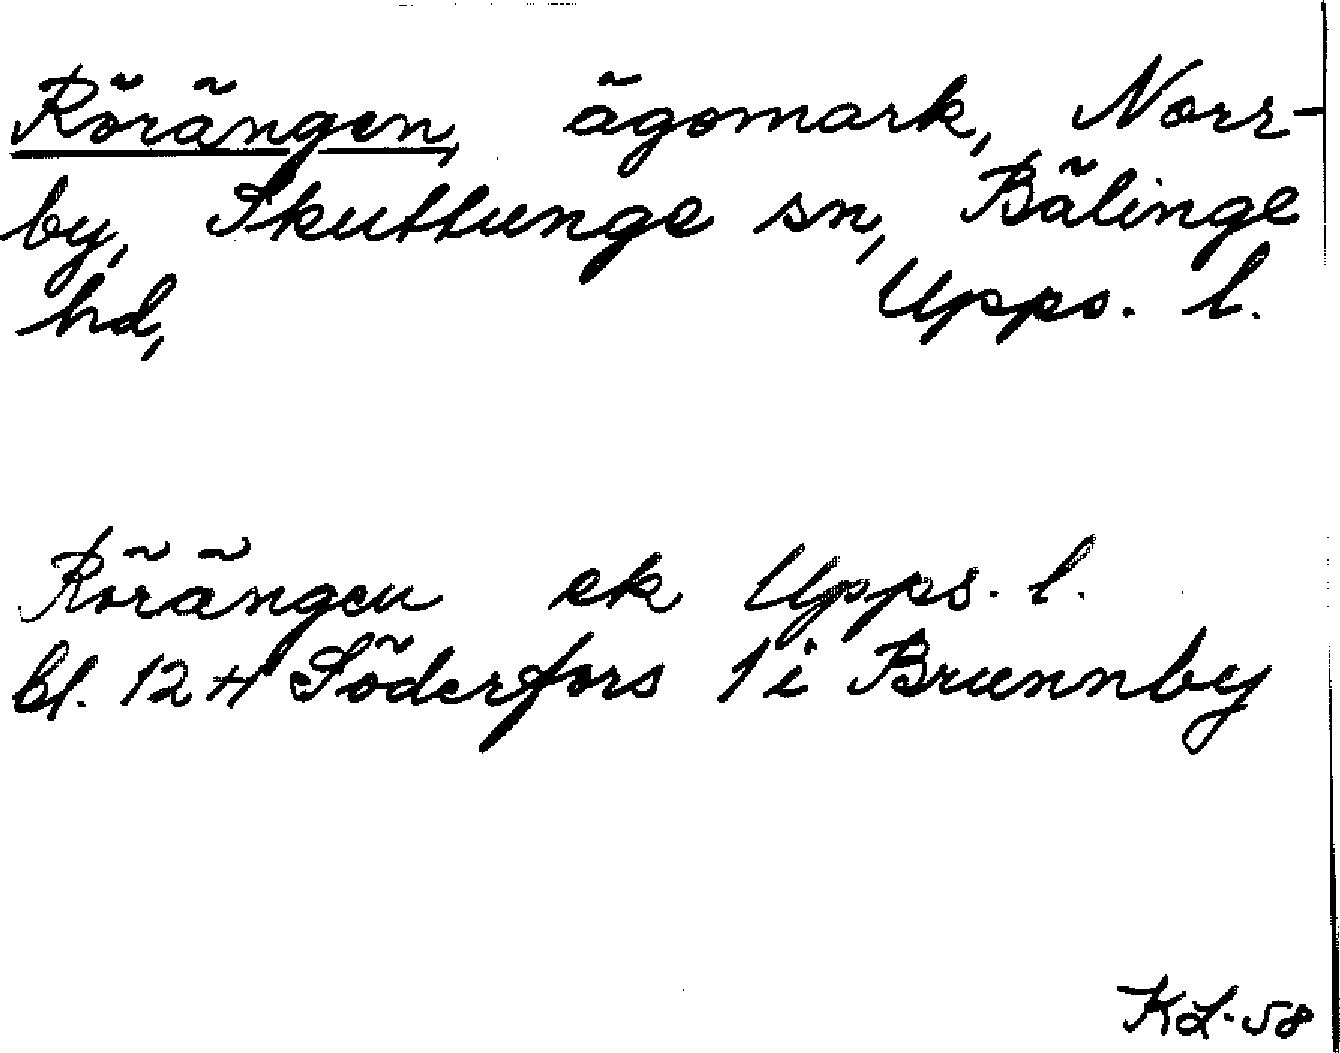 Rörängen, ägomark, Norr-
by, Skuttunge sn, Bälinge
hd, Upps. l.
Rörängen ek Upps. l.
bl. 12 H Söderfors 1 i Brunnby
KL-58